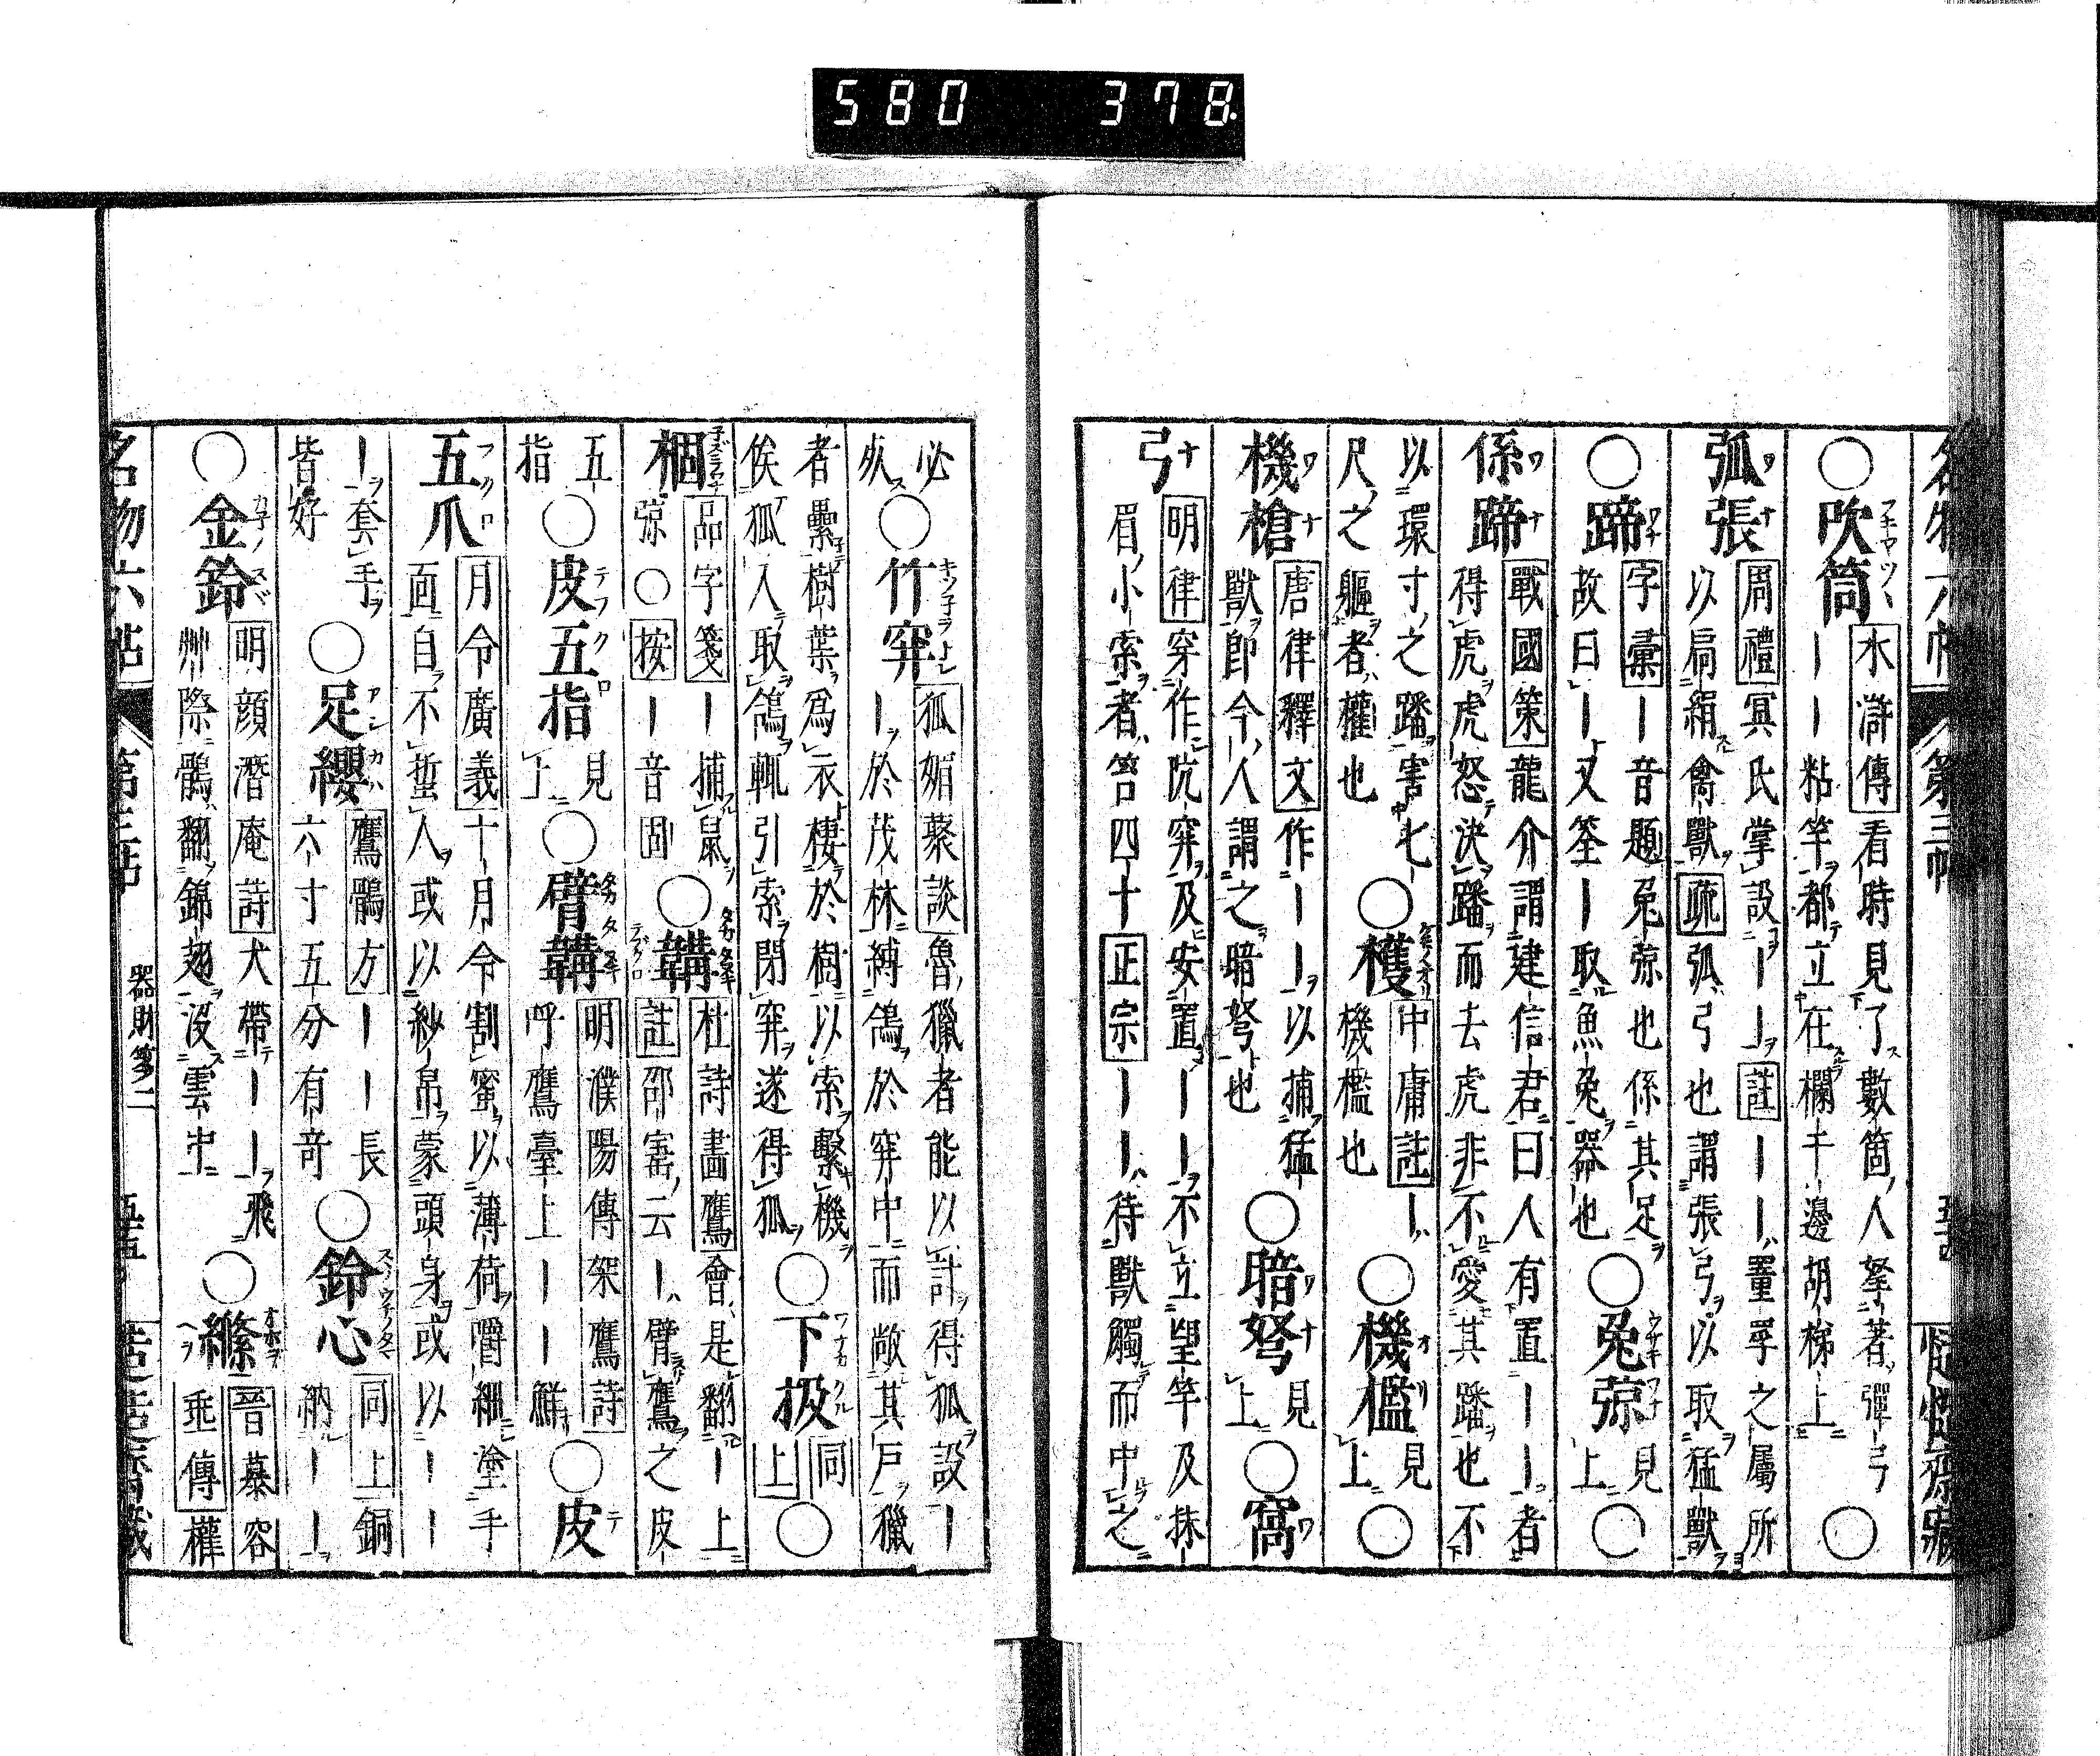 580 378
○吹筒水滸傳看時見了數箇人拏著彈弓
——粘竿都立在欄干邊胡梯上○
弧張周禮冥氏掌設——註——置罦之屬所
以扃絹禽獸疏弧弓也謂張弓以取猛獸
○蹄字彙—音題兔弶也係其足
故曰—又筌—取魚兔器也○兔弶見上○
係蹄戰國策龍介謂建信君曰人有置——者
得虎虎怒決蹯而去虎非不愛其蹯也不
以環寸之蹯害七
尺之軀者權也○擭中庸註—
機檻也○機檻見上○
機槍唐律釋文作——以捕猛
獸即今人謂之暗弩也○暗弩見上○窩
弓明律穿作阬穽及安置——不立望竿及抹
眉小索者笞四十正宗——待獸觸而中之
名物六帖 第三帖 器財箋二
必
死○竹穽狐媚藂談魯獵者能以計得狐設—
—於茂林縛鴿於穽中而敞其戶獵
者疊樹葉爲衣棲於樹以索繫機
俟狐入取鴿輒引索閉穽遂得狐○下极同上○
棝品字箋—捕鼠
弶○按—音固○鞲杜詩畫鷹會是翻—上
註邵寶云—臂鷹之皮
五
指○皮五指見上○臂鞲明濮陽傳架鷹詩
呼鷹臺上——鮮○皮
五爪月令廣義十月令割蜜以薄荷嚼細塗手
面自不蜇人或以紗帛蒙頭身或以——
—套手
皆好○足纓鷹鶻方——長
六寸五分有竒○鈴心同上銅
納——
○金鈴明顔潛庵詩犬帶——飛
艸際鶻翻錦翅沒雲中○絛晉慕容
垂傳權